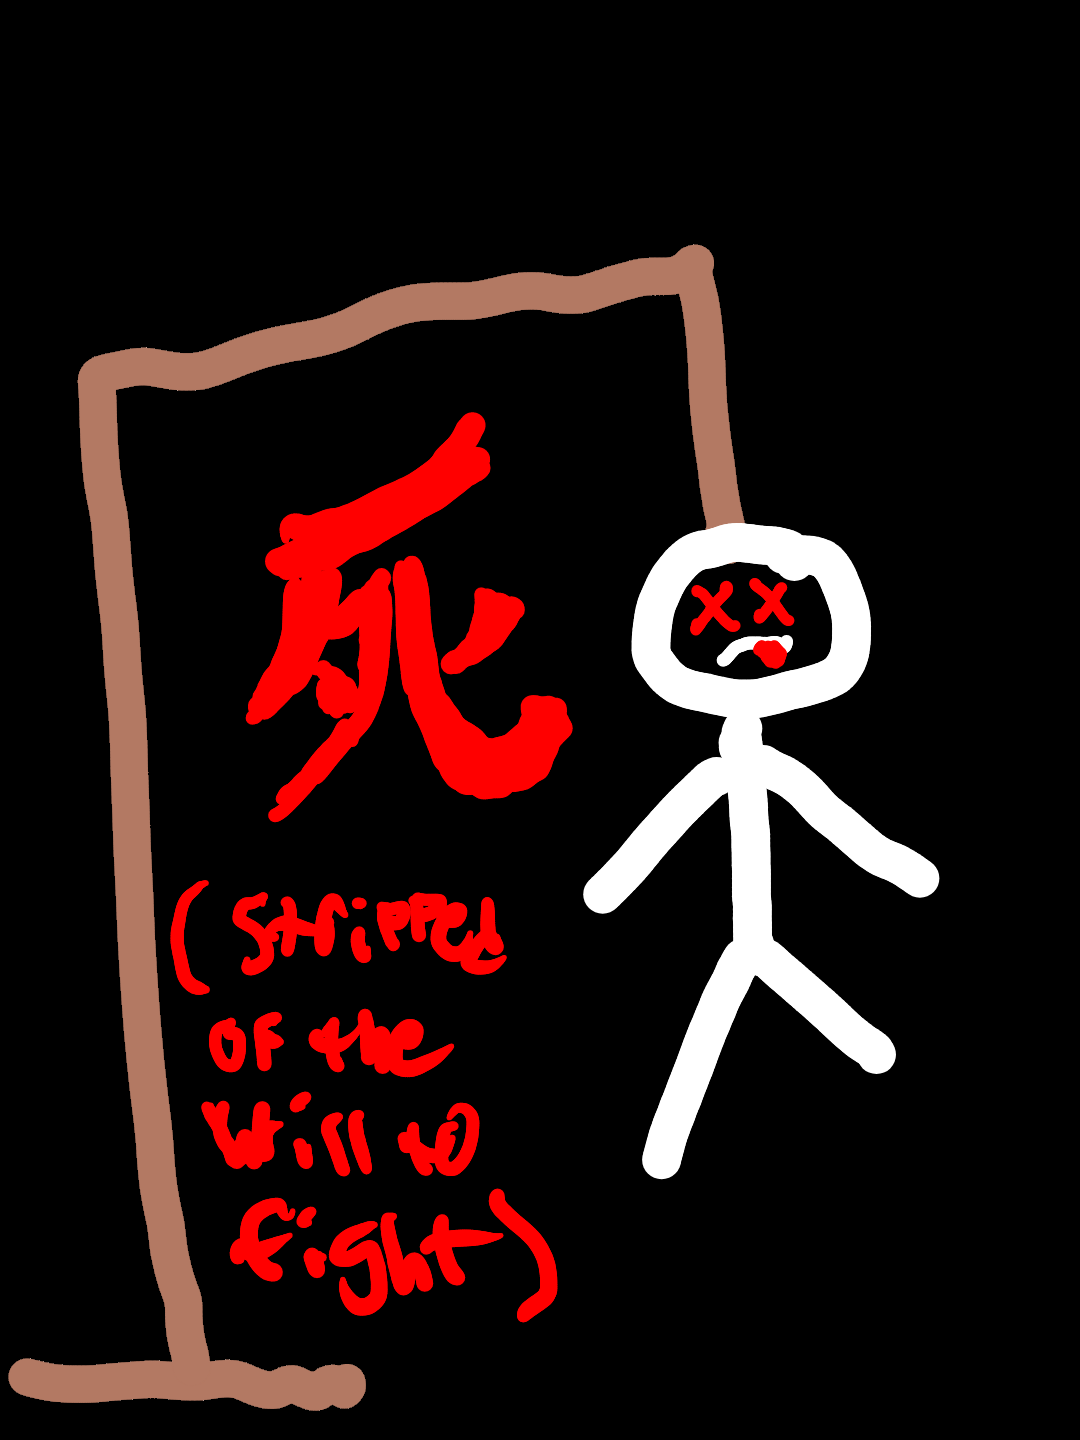 死
(stripped
of the
will to
fight)